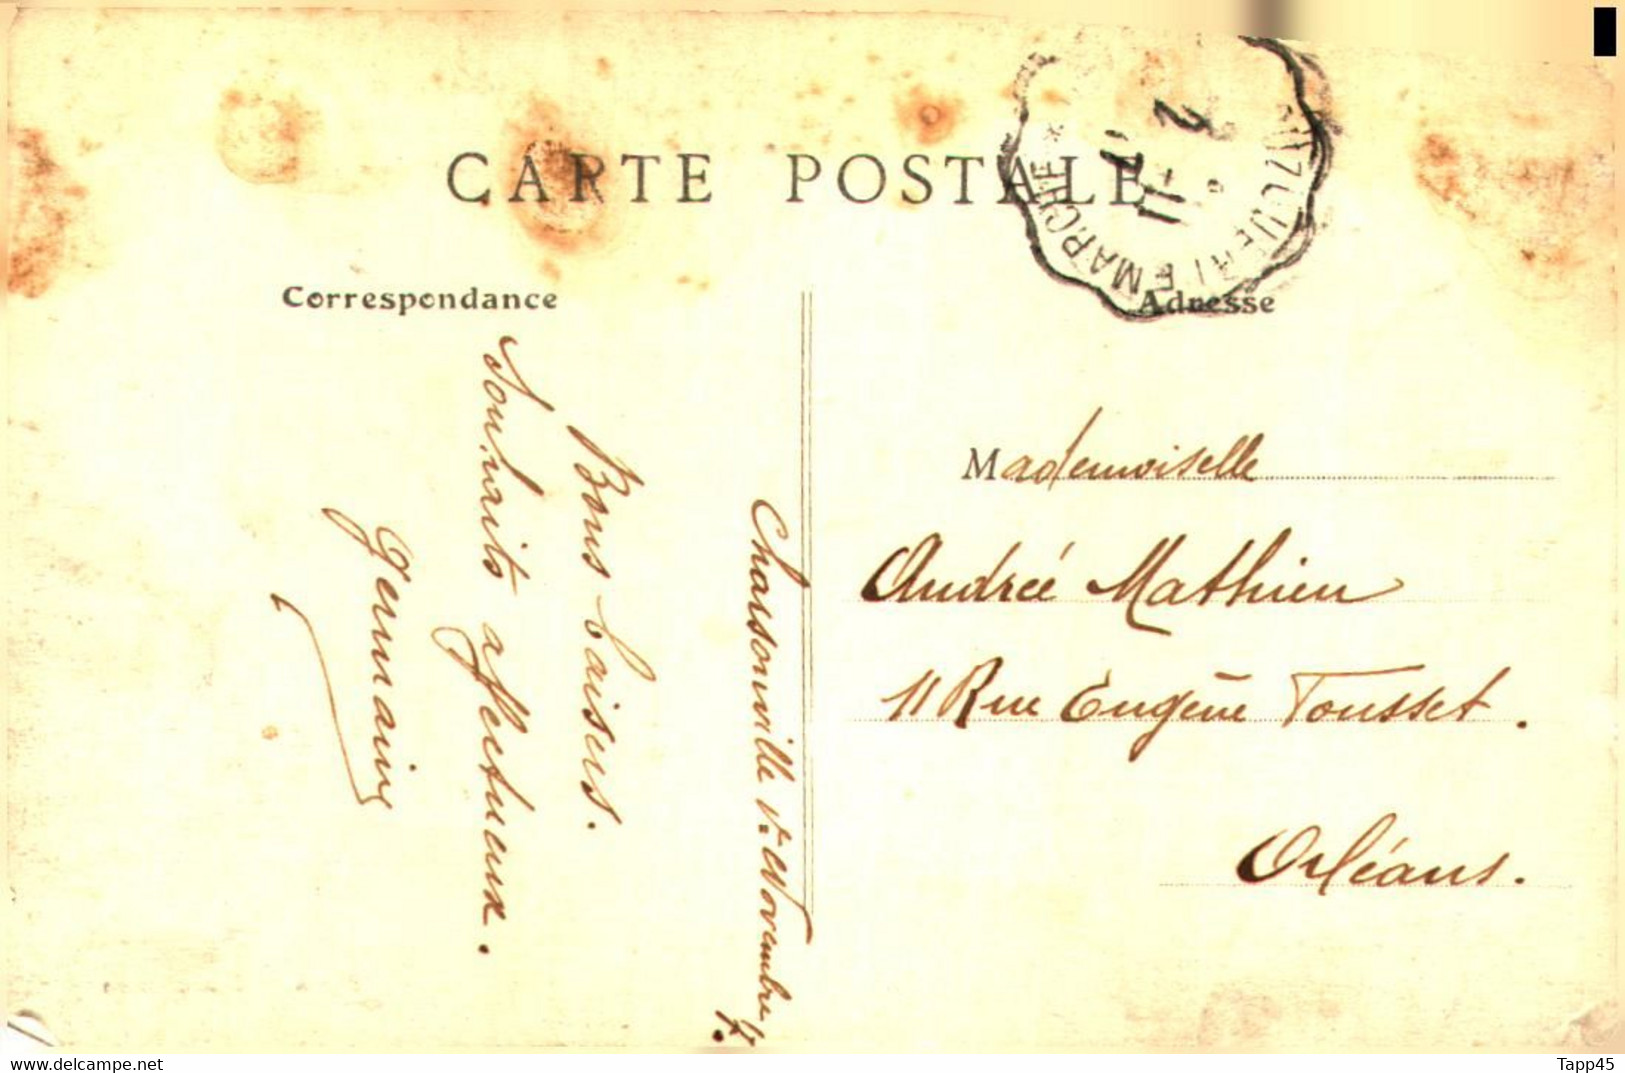 CARTE POSTALE
Correspondance
Adresse
Chassonville 1er Novembre 17.
Bons baisers.
Souhaits affectueux.
Germaine
Mademoiselle
Andrée Mathieu
11 Rue Eugène Tousset.
Orléans.
MARCHE
2
11-17
delcampe.net
Tapp45